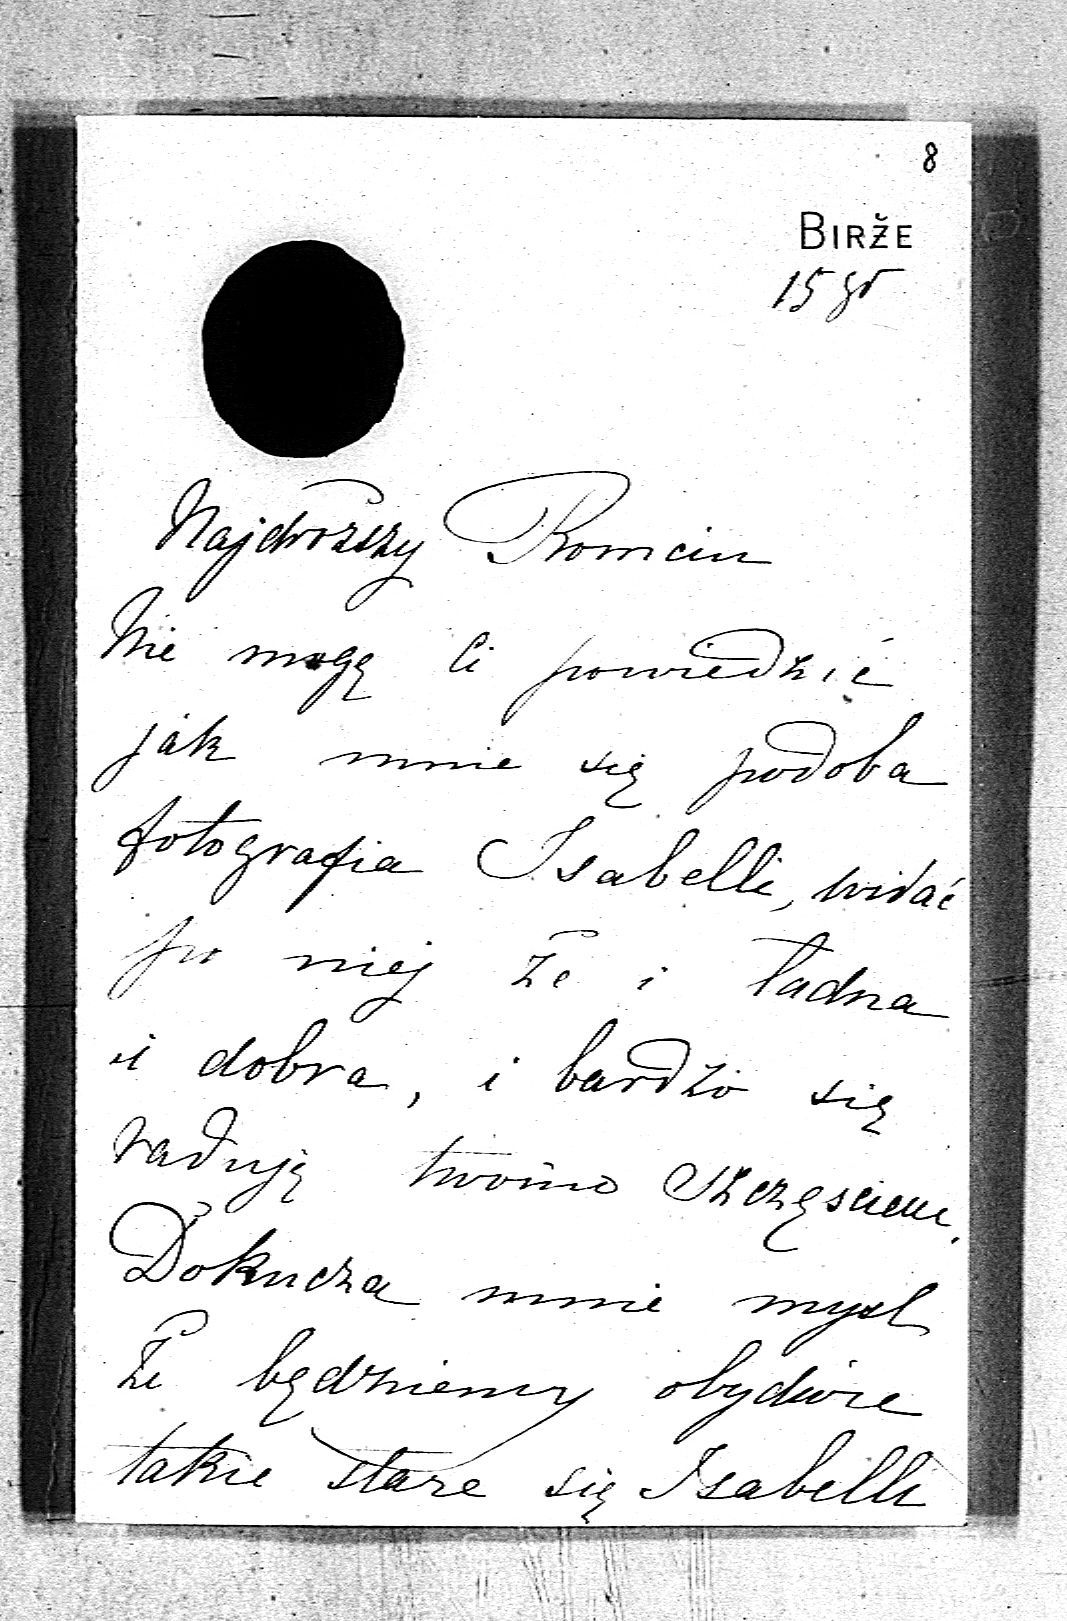 8
BIRŽE
15
Najdroższy Romciu
Nie mogę Ci powiedzić
jak mnie się podoba
fotografia Isabelli, widać
po niej że i ładna
i dobra, i bardzo się
raduję twoim szczęściem.
Dokucza mnie mysl
że będziemy obydwie
takie stare się Isabelli